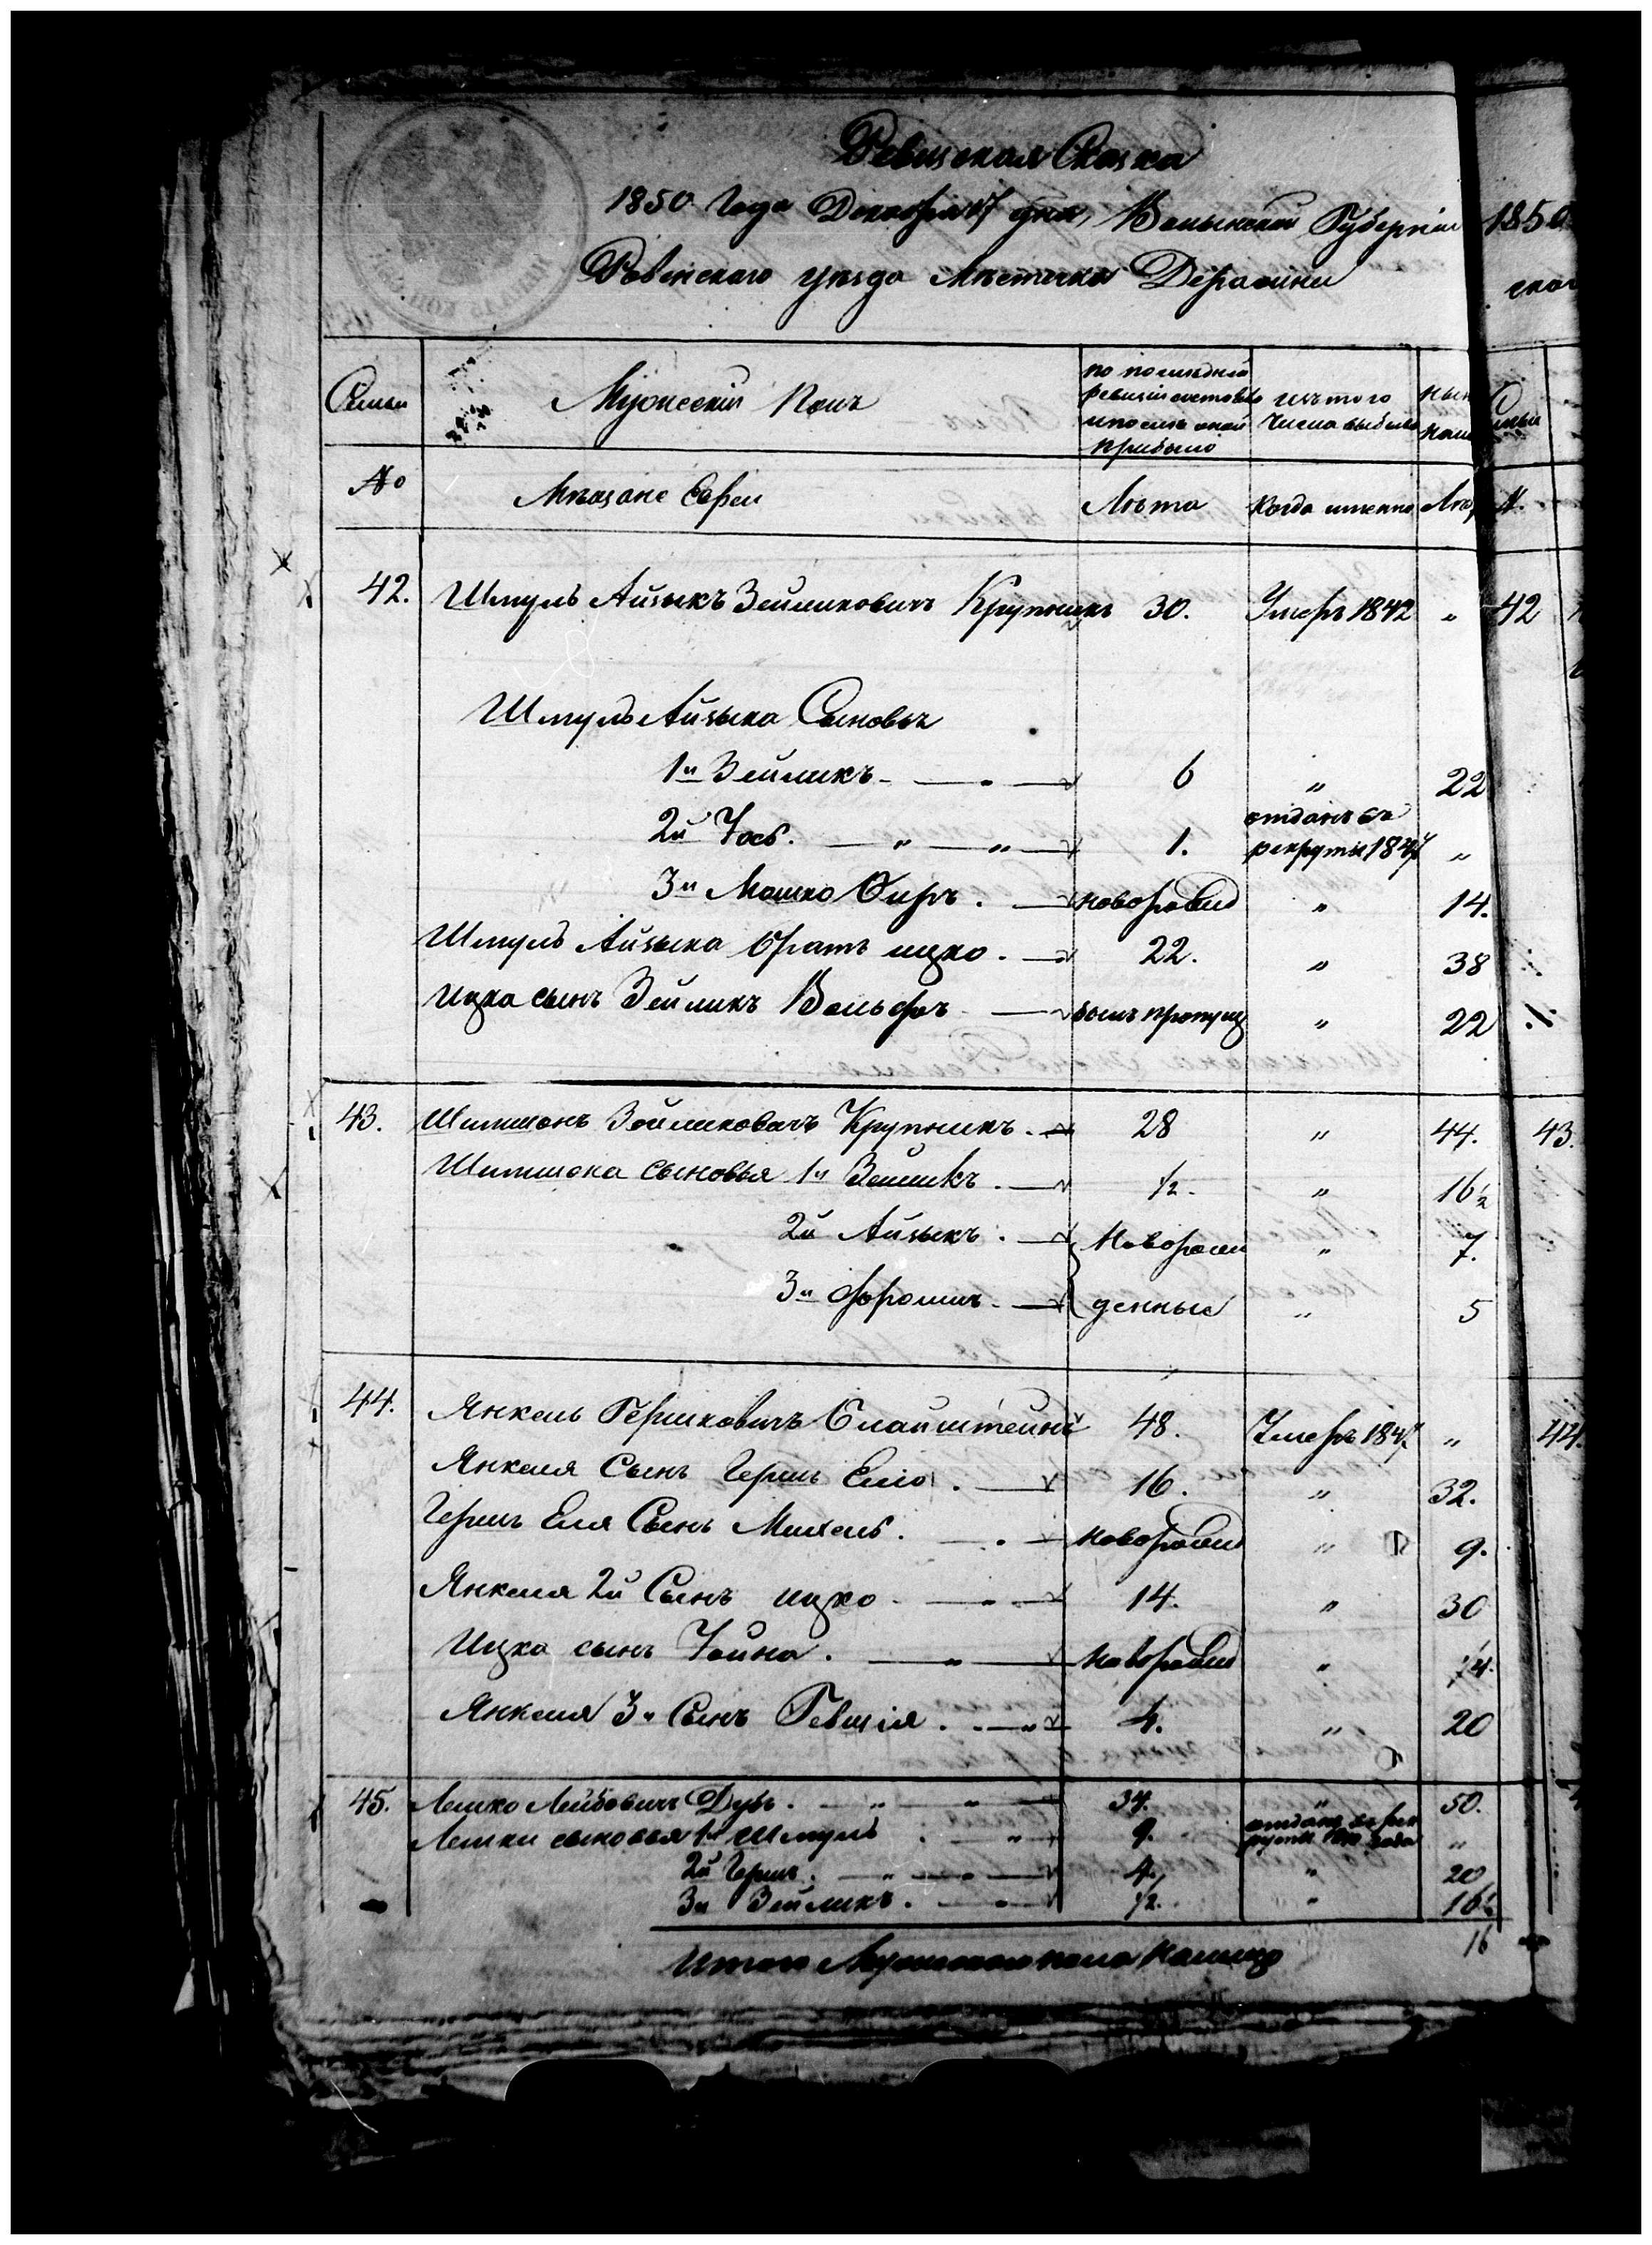 Ревизская Сказка
1850 Года Декабря 17 дня, Волынской Губернии
Ровенского уезда Местечка Деражни
Семьи
Мужеский полъ
по последней
ревизии состояло
и после оной
прибыло
изъ того
числа выбыло
ныне
№
Мещане Евреи
Лета
Когда именно
Лета
42.
Шмуль Айзыкъ Зейликовичъ Крупникъ 30. Умеръ 1842 "
Шмуль Айзыка Сыновья
1й Зейликъ 6 " 22
2й Іось. 1. отданъ въ рекруты 184 "
3й Мошко новорожд " 14.
Шмуль Айзыка братъ Ицко. 22. " 38
Ицка сынъ Зейликъ Вольфъ былъ пропущ " 22
43. Шимшонъ Зейликовичъ Крупникъ. 28 " 44.
Шимшона сыновья 1й Зейликъ. 1/2. " 16 1/2
2й Айзыкъ. Новорож " 7.
3й Фроимъ. денные " 5
44. Янкель Гершковичъ 48. Умеръ 184 "
Янкеля Сынъ Гершъ Еліо. 16. " 32.
Гершъ Еля Сынъ Михель. новорожд " 9.
Янкеля 2й Сынъ Ицко. 14. " 30
Ицка сынъ Іойна. новорожд "
Янкеля 3й Сынъ Гевшія. 4. " 20
45. Лейбовичъ Дубъ. 34. " 50.
сыновья 1й Шмуль. 9. отданъ въ рекруты года "
2й Гершъ. 4. " 20
3й Зейликъ. 1/2. " 16 1/2
Итого Мужеского пола налицо 16
1850
Семьи
42
43.
44.